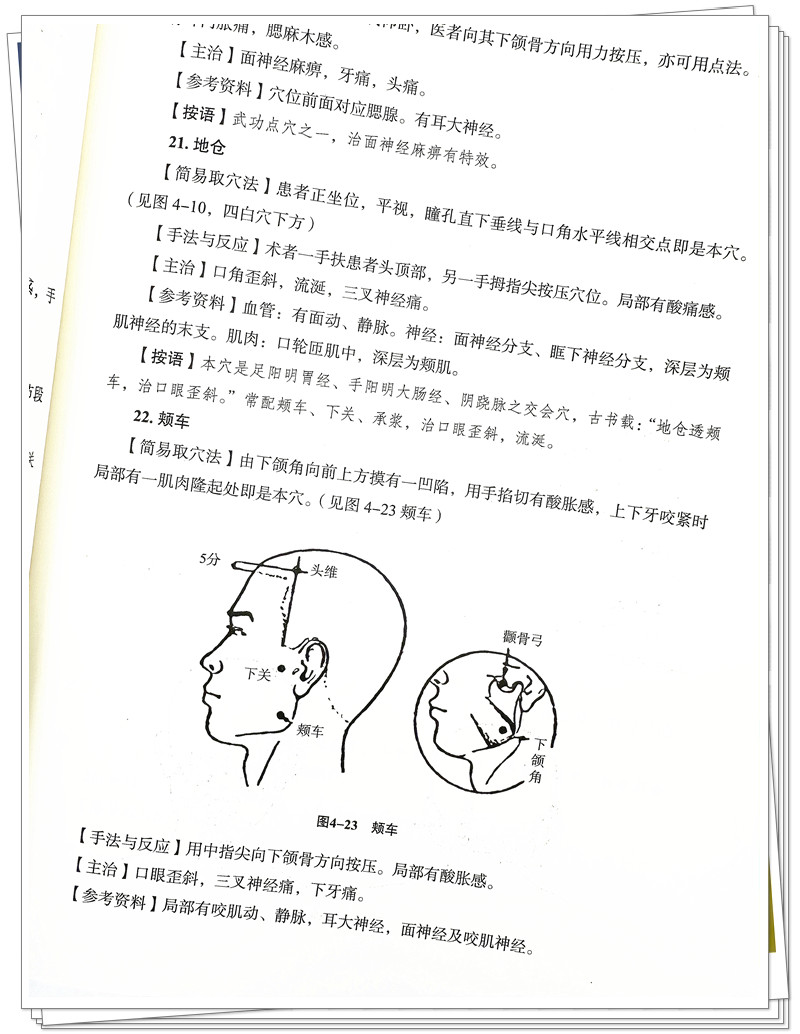 医者向其下颌骨方向用力按压，亦可用点法。
胀痛，腮麻木感。
【主治】面神经麻痹，牙痛，头痛。
【参考资料】穴位前面对应腮腺。有耳大神经。
【按语】武功点穴之一，治面神经麻痹有特效。
21. 地仓
【简易取穴法】患者正坐位，平视，瞳孔直下垂线与口角水平线相交点即是本穴。
（见图 4–10，四白穴下方）
【手法与反应】术者一手扶患者头顶部，另一手拇指尖按压穴位。局部有酸痛感。
【主治】口角歪斜，流涎，三叉神经痛。
【参考资料】血管：有面动、静脉。神经：面神经分支、眶下神经分支，深层为颊
肌神经的末支。肌肉：口轮匝肌中，深层为颊肌。
【按语】本穴是足阳明胃经、手阳明大肠经、阴跷脉之交会穴，古书载：“地仓透颊
车，治口眼歪斜。”常配颊车、下关、承浆，治口眼歪斜，流涎。
22. 颊车
【简易取穴法】由下颌角向前上方摸有一凹陷，用手掐切有酸胀感，上下牙咬紧时
局部有一肌肉隆起处即是本穴。（见图 4–23 颊车）
5分
头维
下关
颊车
颧骨弓
下颌角
图4–23 颊车
【手法与反应】用中指尖向下颌骨方向按压。局部有酸胀感。
【主治】口眼歪斜，三叉神经痛，下牙痛。
【参考资料】局部有咬肌动、静脉，耳大神经，面神经及咬肌神经。
，手
段